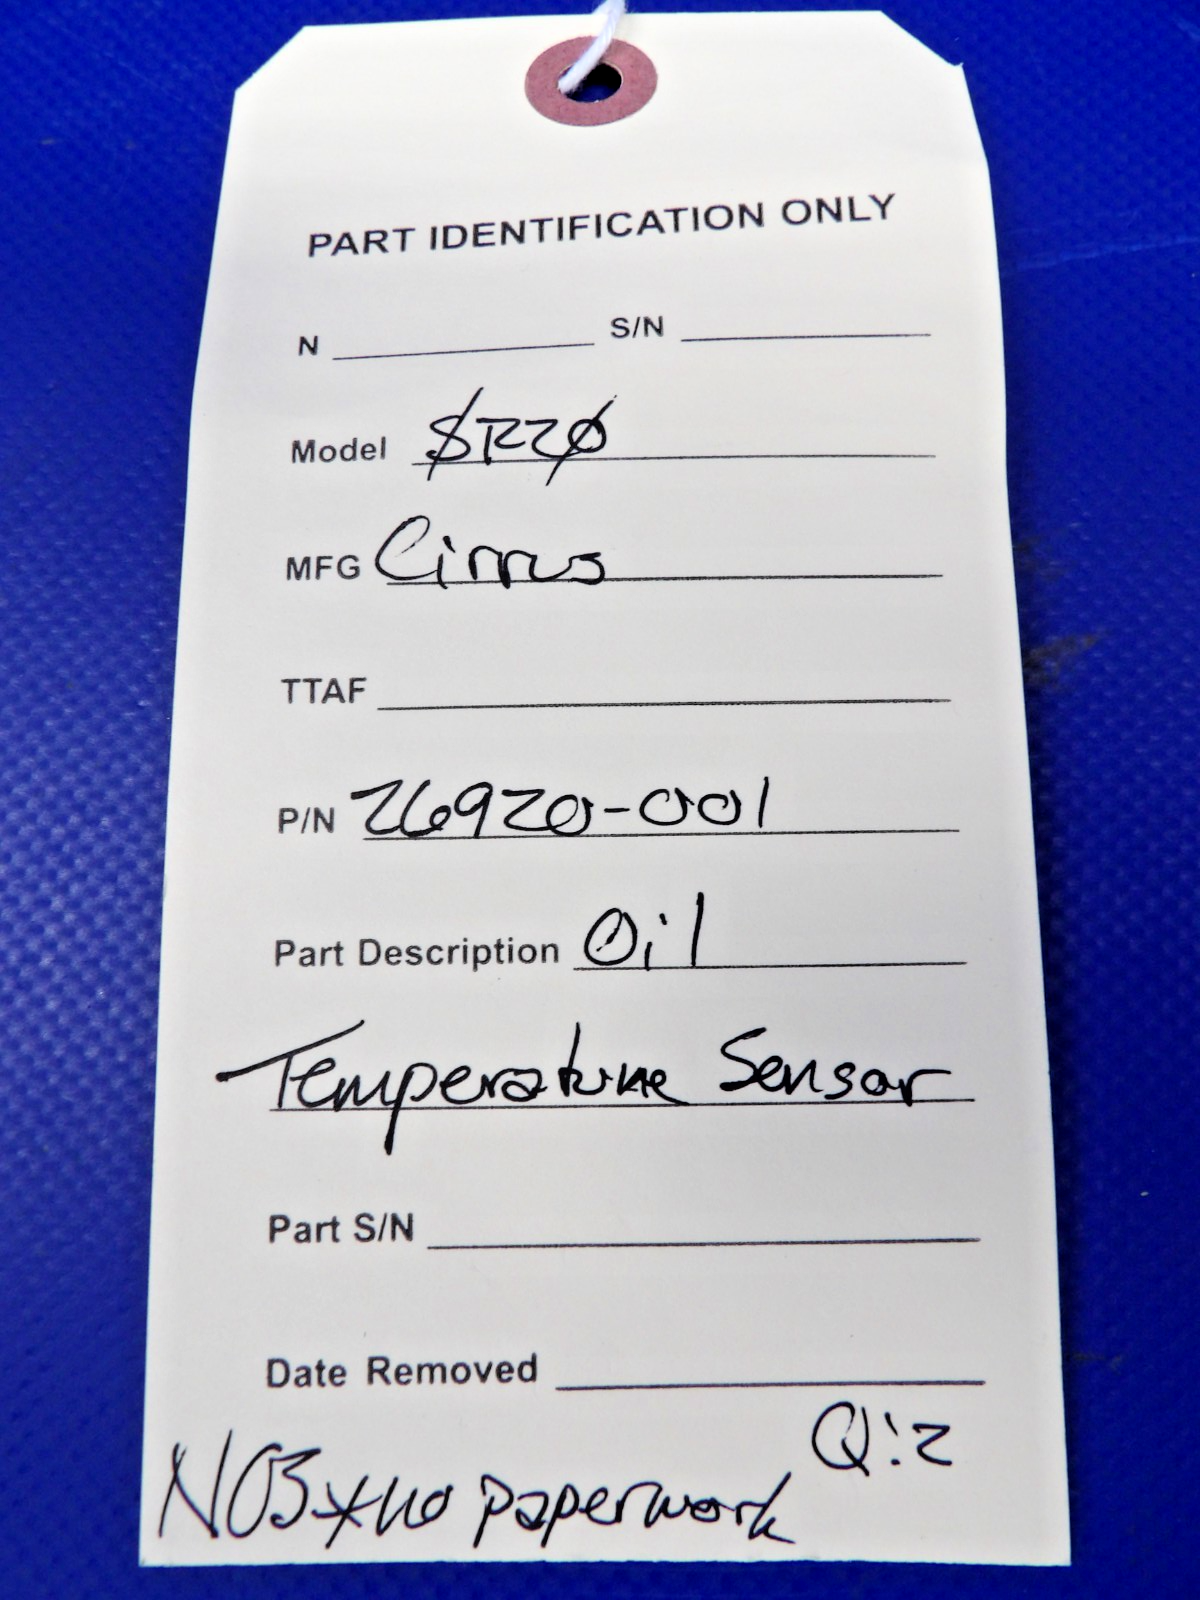 PART IDENTIFICATION ONLY
N S/N
Model SR20
MFG Cirrus
TTAF
P/N 26920-001
Part Description Oil
Temperature Sensor
Part S/N
Date Removed
Q:2
NOS*no paperwork